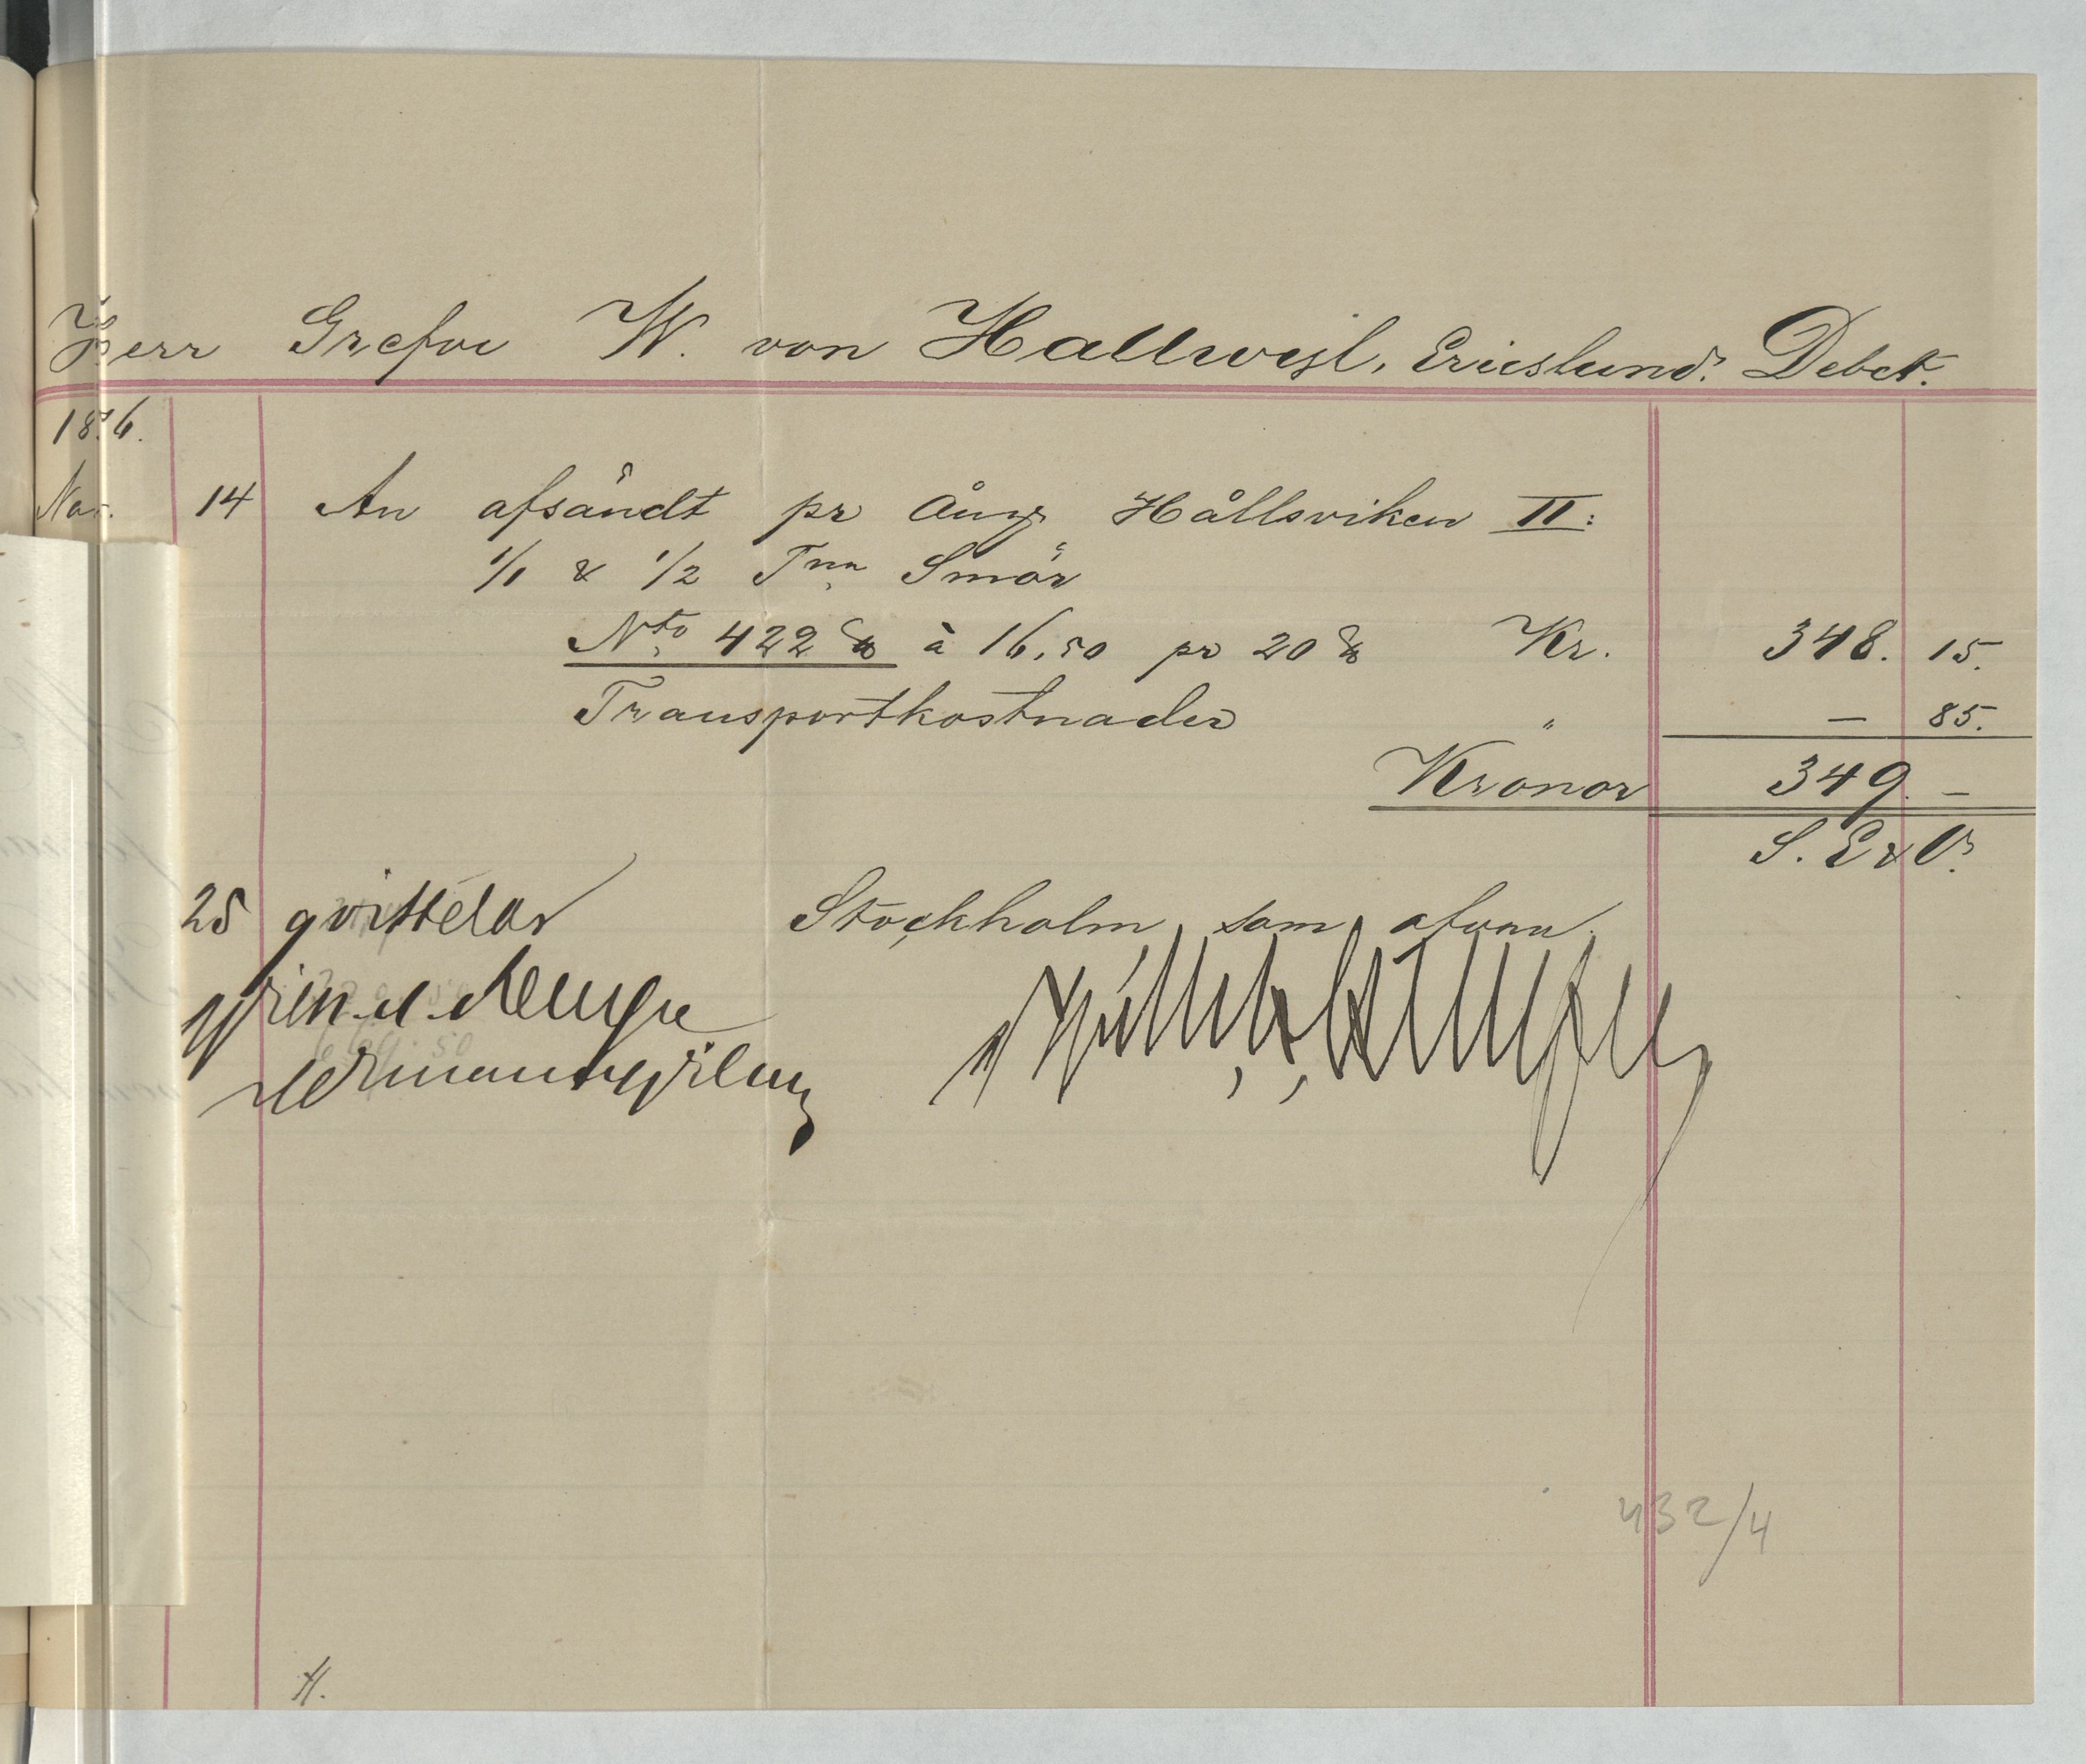 Herr Grefve W. von Hallwyl, Ericslund. Debet.
1896.
Nov. 14 An afsändt pr Ång. Hållsviken II:
1/1 & 1/2 Tnn Smör
Nto 422 ℔ à 16,50 pr 20 ℔ Kr. 348. 15.
Transportkostnader " — 85.
Kronor 349. —
S. E & O.
25 qvitteras Stockholm som ofvan.
432/4
H.